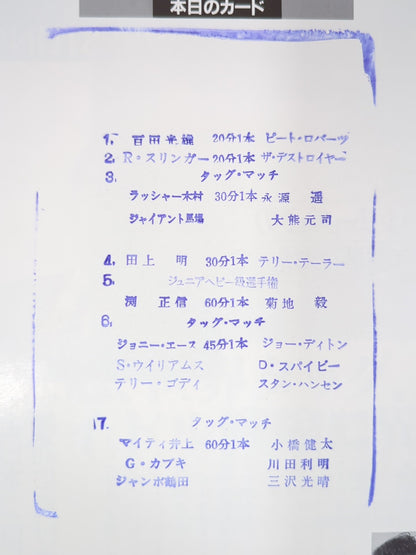 本日のカード
1. 百田光雄 20分1本 ピート・ロバーツ
2. R・スリンガー 20分1本 ザ・デストロイヤー
3. タッグ・マッチ
ラッシャー木村 30分1本 永源 遥
ジャイアント馬場 大熊元司
4. 田上 明 30分1本 テリー・テーラー
5. ジュニアヘビー級選手権
渕 正信 60分1本 菊地 毅
6. タッグ・マッチ
ジョニー・エース 45分1本 ジョー・ディトン
S・ウイリアムス D・スパイビー
テリー・ゴディ スタン・ハンセン
7. タッグ・マッチ
マイティ井上 60分1本 小橋健太
G・カブキ 川田利明
ジャンボ鶴田 三沢光晴